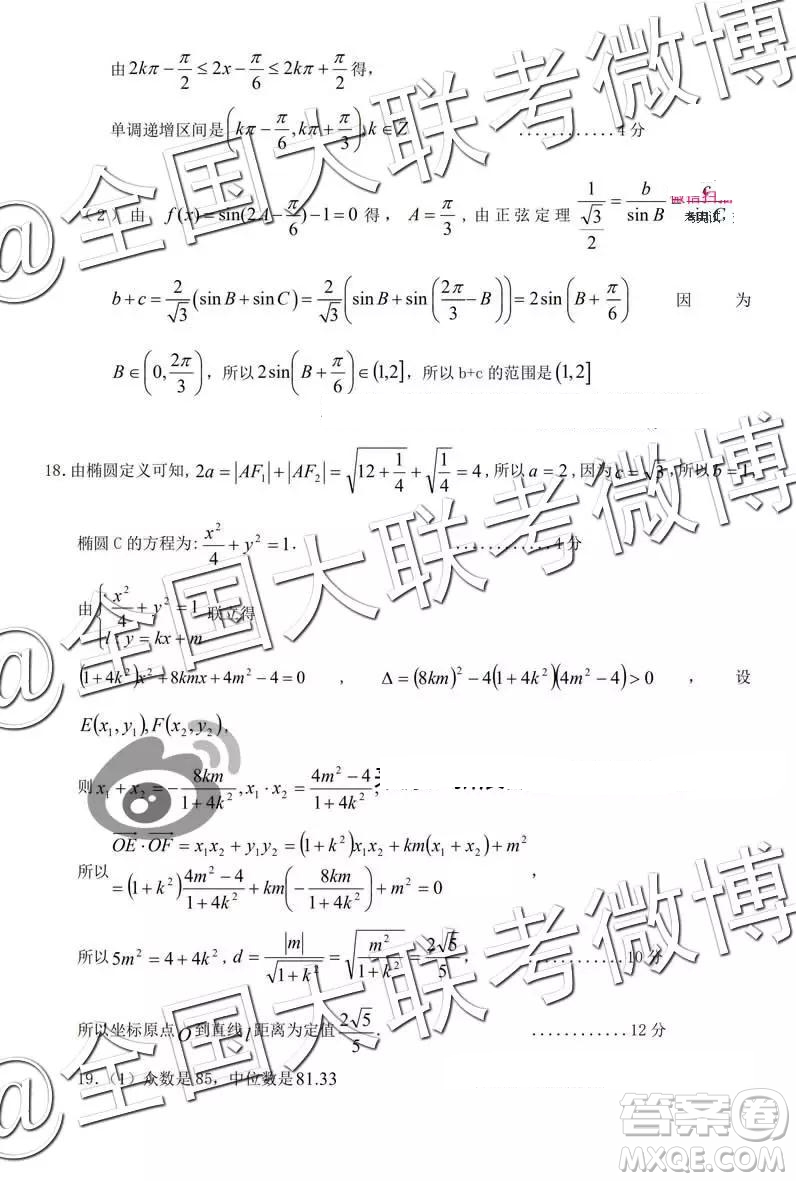 由2kπ − π/2 ≤ 2x − π/6 ≤ 2kπ + π/2 得,
单调递增区间是(kπ − π/6, kπ + π/3), k ∈ Z ............4分
(2)由 f(x)=sin(2A − π/6) − 1 = 0 得, A = π/3, 由正弦定理 1/(√3/2) = b/sin B c/sin C,
b + c = 2/√3 (sin B + sin C) = 2/√3 (sin B + sin(2π/3 − B)) = 2sin(B + π/6) 因 为
B ∈ (0, 2π/3), 所以 2sin(B + π/6) ∈ (1,2], 所以 b+c 的范围是 (1,2]
18.由椭圆定义可知, 2a = |AF₁| + |AF₂| = √(12 + 1/4) + √(1/4) = 4, 所以 a = 2, 因为 c = √3, 所以 b = 1,
椭圆 C 的方程为: x²/4 + y² = 1. ............4分
由{x²/4 + y² = 1
l: y = kx + m 联立得
(1 + 4k²)x² + 8kmx + 4m² − 4 = 0 , Δ = (8km)² − 4(1 + 4k²)(4m² − 4) > 0 , 设
E(x₁, y₁), F(x₂, y₂),
则 x₁ + x₂ = − 8km/(1 + 4k²), x₁ · x₂ = (4m² − 4)/(1 + 4k²),
所以 OE · OF = x₁x₂ + y₁y₂ = (1 + k²)x₁x₂ + km(x₁ + x₂) + m²
= (1 + k²)(4m² − 4)/(1 + 4k²) + km(− 8km/(1 + 4k²)) + m² = 0 ,
所以 5m² = 4 + 4k², d = |m|/√(1 + k²) = √(m²/(1 + k²)) = 2√5/5, ............10分
所以坐标原点 O 到直线 l 距离为定值 2√5/5. ............12分
19.(1)众数是 85, 中位数是 81.33
@全国大联考微博
@全国大联考微博
@全国大联考微博
答案卷
MXQE.COM